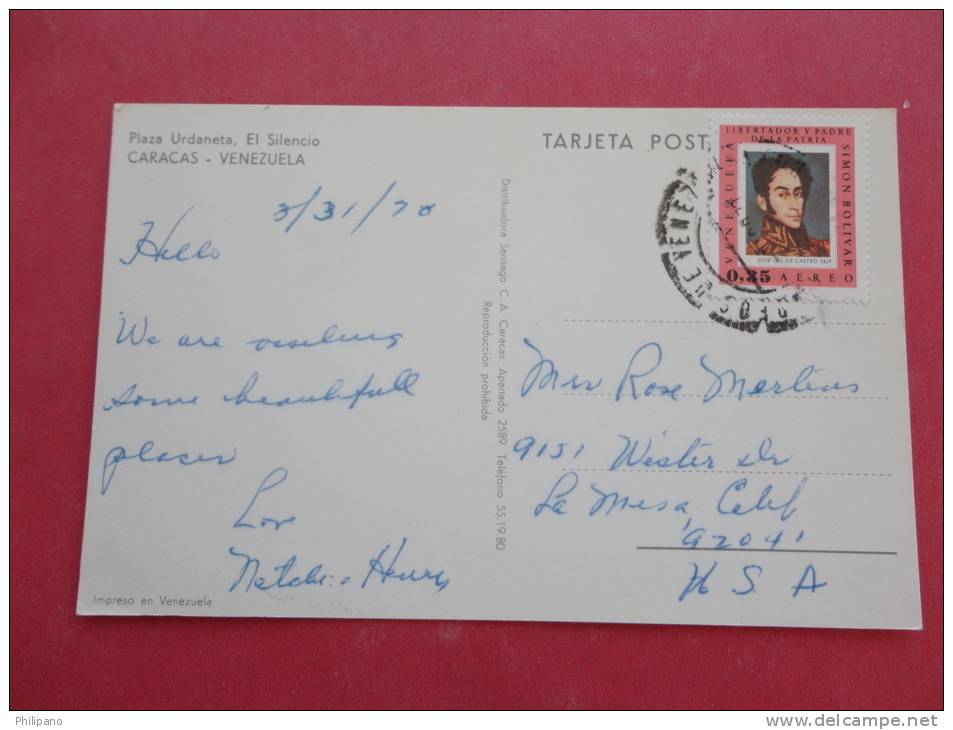 Plaza Urdaneta, El Silencio
CARACAS - VENEZUELA
3/31/78
Hello
We are visiting
some beautifull
places
Love
Henry
Impreso en Venezuela
Distribuidora Santiago C. A. Caracas. Apartado 2589. Teléfono 55.19.80
Reproducción prohibida
TARJETA POST
LIBERTADOR Y PADRE
DE LA PATRIA
SIMON BOLIVAR
VENEZUELA
JOSE GIL DE CASTRO 1825
0,85 AEREO
DE VENE
Mrs Rose Mertens
9151 Wister Dr
La Mesa, Calif
92041
U S A
Philipano
www.delcampe.net